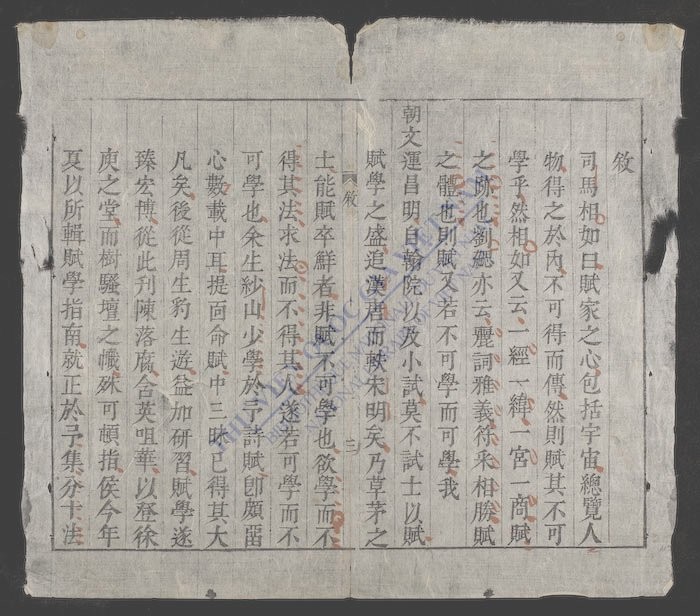 敘
司馬相如曰賦家之心包括宇宙總覽人
物得之於內不可得而傳然則賦其不可
學乎然相如又云一經一緯一宮一商賦
之跡也劉勰亦云麗詞雅義符采相勝賦
之體也則賦又若不可學而可學我
朝文運昌明自翰院以及小試莫不試士以賦
賦學之盛追漢唐而軼宋明矣乃草茅之
敘
士能賦卒鮮者非賦不可學也欲學而不
得其法求法而不得其人遂若可學而不
可學也余生紗山少學於予詩賦卽頗留
心數載中耳提面命賦中三昧已得其大
凡矣後從周生豹生遊益加研習賦學遂
臻宏博從此刊陳落腐含英咀華以登徐
庾之堂而樹騷壇之幟殊可頓指侯今年
夏以所輯賦學指南就正於予集分十法
THƯ VIỆN QUỐC GIA VIỆT NAM
BIBLIOTHÈQUE NATIONALE DU VIETNAM
NATIONAL LIBRARY OF VIETNAM